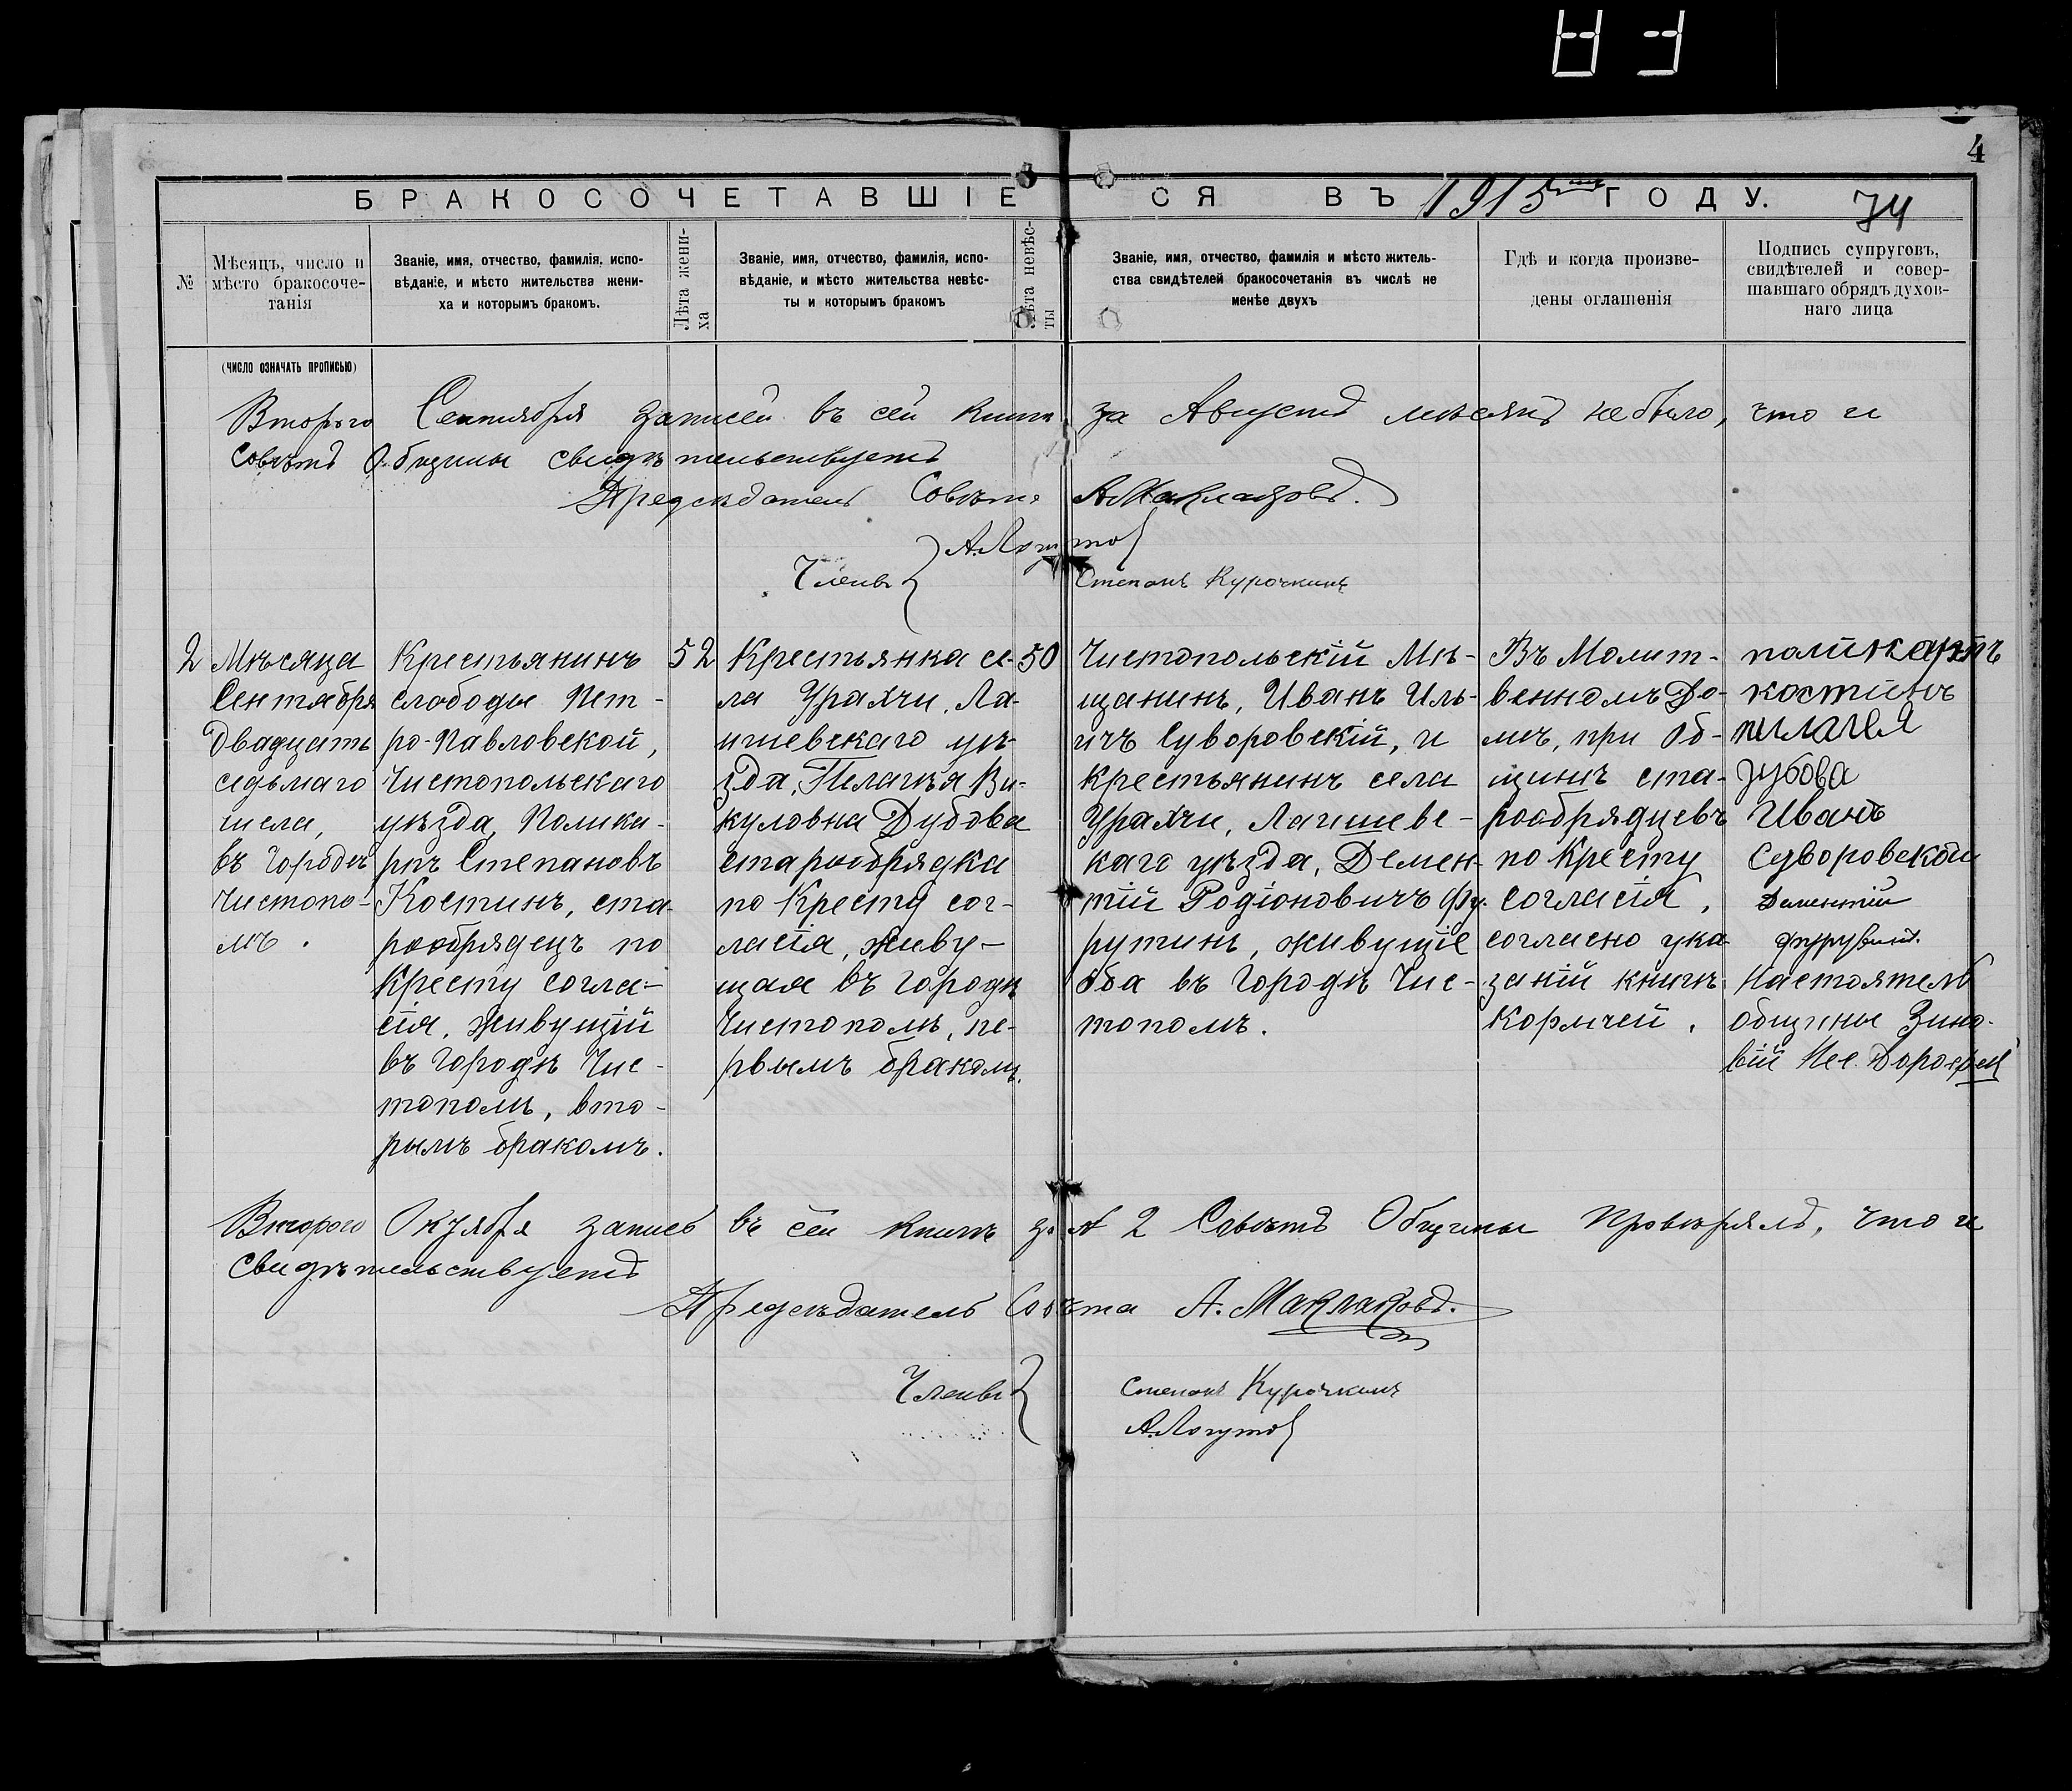 4
БРАКОСОЧЕТАВШІЕСЯ ВЪ 1915 ГОДУ.
74
№
Мѣсяцъ, число и
мѣсто бракосоче-
танія
Званіе, имя, отчество, фамилія, испо-
вѣданіе, и мѣсто жительства жени-
ха и которымъ бракомъ.
Лѣта жени-
ха
Званіе, имя, отчество, фамилія, испо-
вѣданіе, и мѣсто жительства невѣс-
ты и которымъ бракомъ
Лѣта невѣс-
ты
Званіе, имя, отчество, фамилія и мѣсто житель-
ства свидѣтелей бракосочетанія въ числѣ не
менѣе двухъ
Гдѣ и когда произве-
дены оглашенія
Подпись супруговъ,
свидѣтелей и совер-
шавшаго обрядъ духов-
наго лица
(ЧИСЛО ОЗНАЧАТЬ ПРОПИСЬЮ)
Второго Сентября записей въ сей книгѣ за Августъ мѣсяцъ не было, что и
Совѣтъ Общины свидѣтельствуетъ
Предсѣдатель Совѣта А Маклаковъ.
А. Логутов
Члены
Степанъ Курочкинъ
2
Мѣсяца
Сентября
двадцать
седьмаго
числа,
въ городѣ
Чистопо-
лѣ.
Крестьянинъ
слободы Пет-
ро-Павловской,
Чистопольскаго
уѣзда, Полика-
рпъ Степановъ
Костинъ, ста-
рообрядецъ по
Кресту согла-
сія, живущій
въ городѣ Чис-
тополѣ, вто-
рымъ бракомъ.
52
Крестьянка се-
ла Урахчи, Ла-
ишевскаго уѣ-
зда, Пелагѣя Ви-
куловна Дубова
старообрядка
по Кресту сог-
ласія, живу-
щая въ городѣ
Чистополѣ, пе-
рвымъ бракомъ.
50
Чистопольскій Мѣ-
щанинъ, Иванъ Иль-
ичъ Суворовскій, и
крестьянинъ села
Урахчи, Лаишевс-
каго уѣзда, Демен-
тій Родіоновичъ Фу-
рутинъ, живущіе
оба въ городѣ Чис-
тополѣ.
Въ Молит-
венномъ До-
мѣ, при Об-
щинѣ ста-
рообрядцевъ
по Кресту
согласія,
согласно ука-
заній книги
Кормчей.
костинъ
Иванъ
Суворовской
Дементій
Настоятель
общины Зино-
вій Ис. Дорофеев
Второго Октября запись въ сей книгѣ за № 2 Совѣтъ Общины провѣрялъ, что и
свидѣтельствуетъ
Предсѣдатель Совѣта А. Маклаковъ.
Члены
Степанъ Курочкинъ
А. Логутов